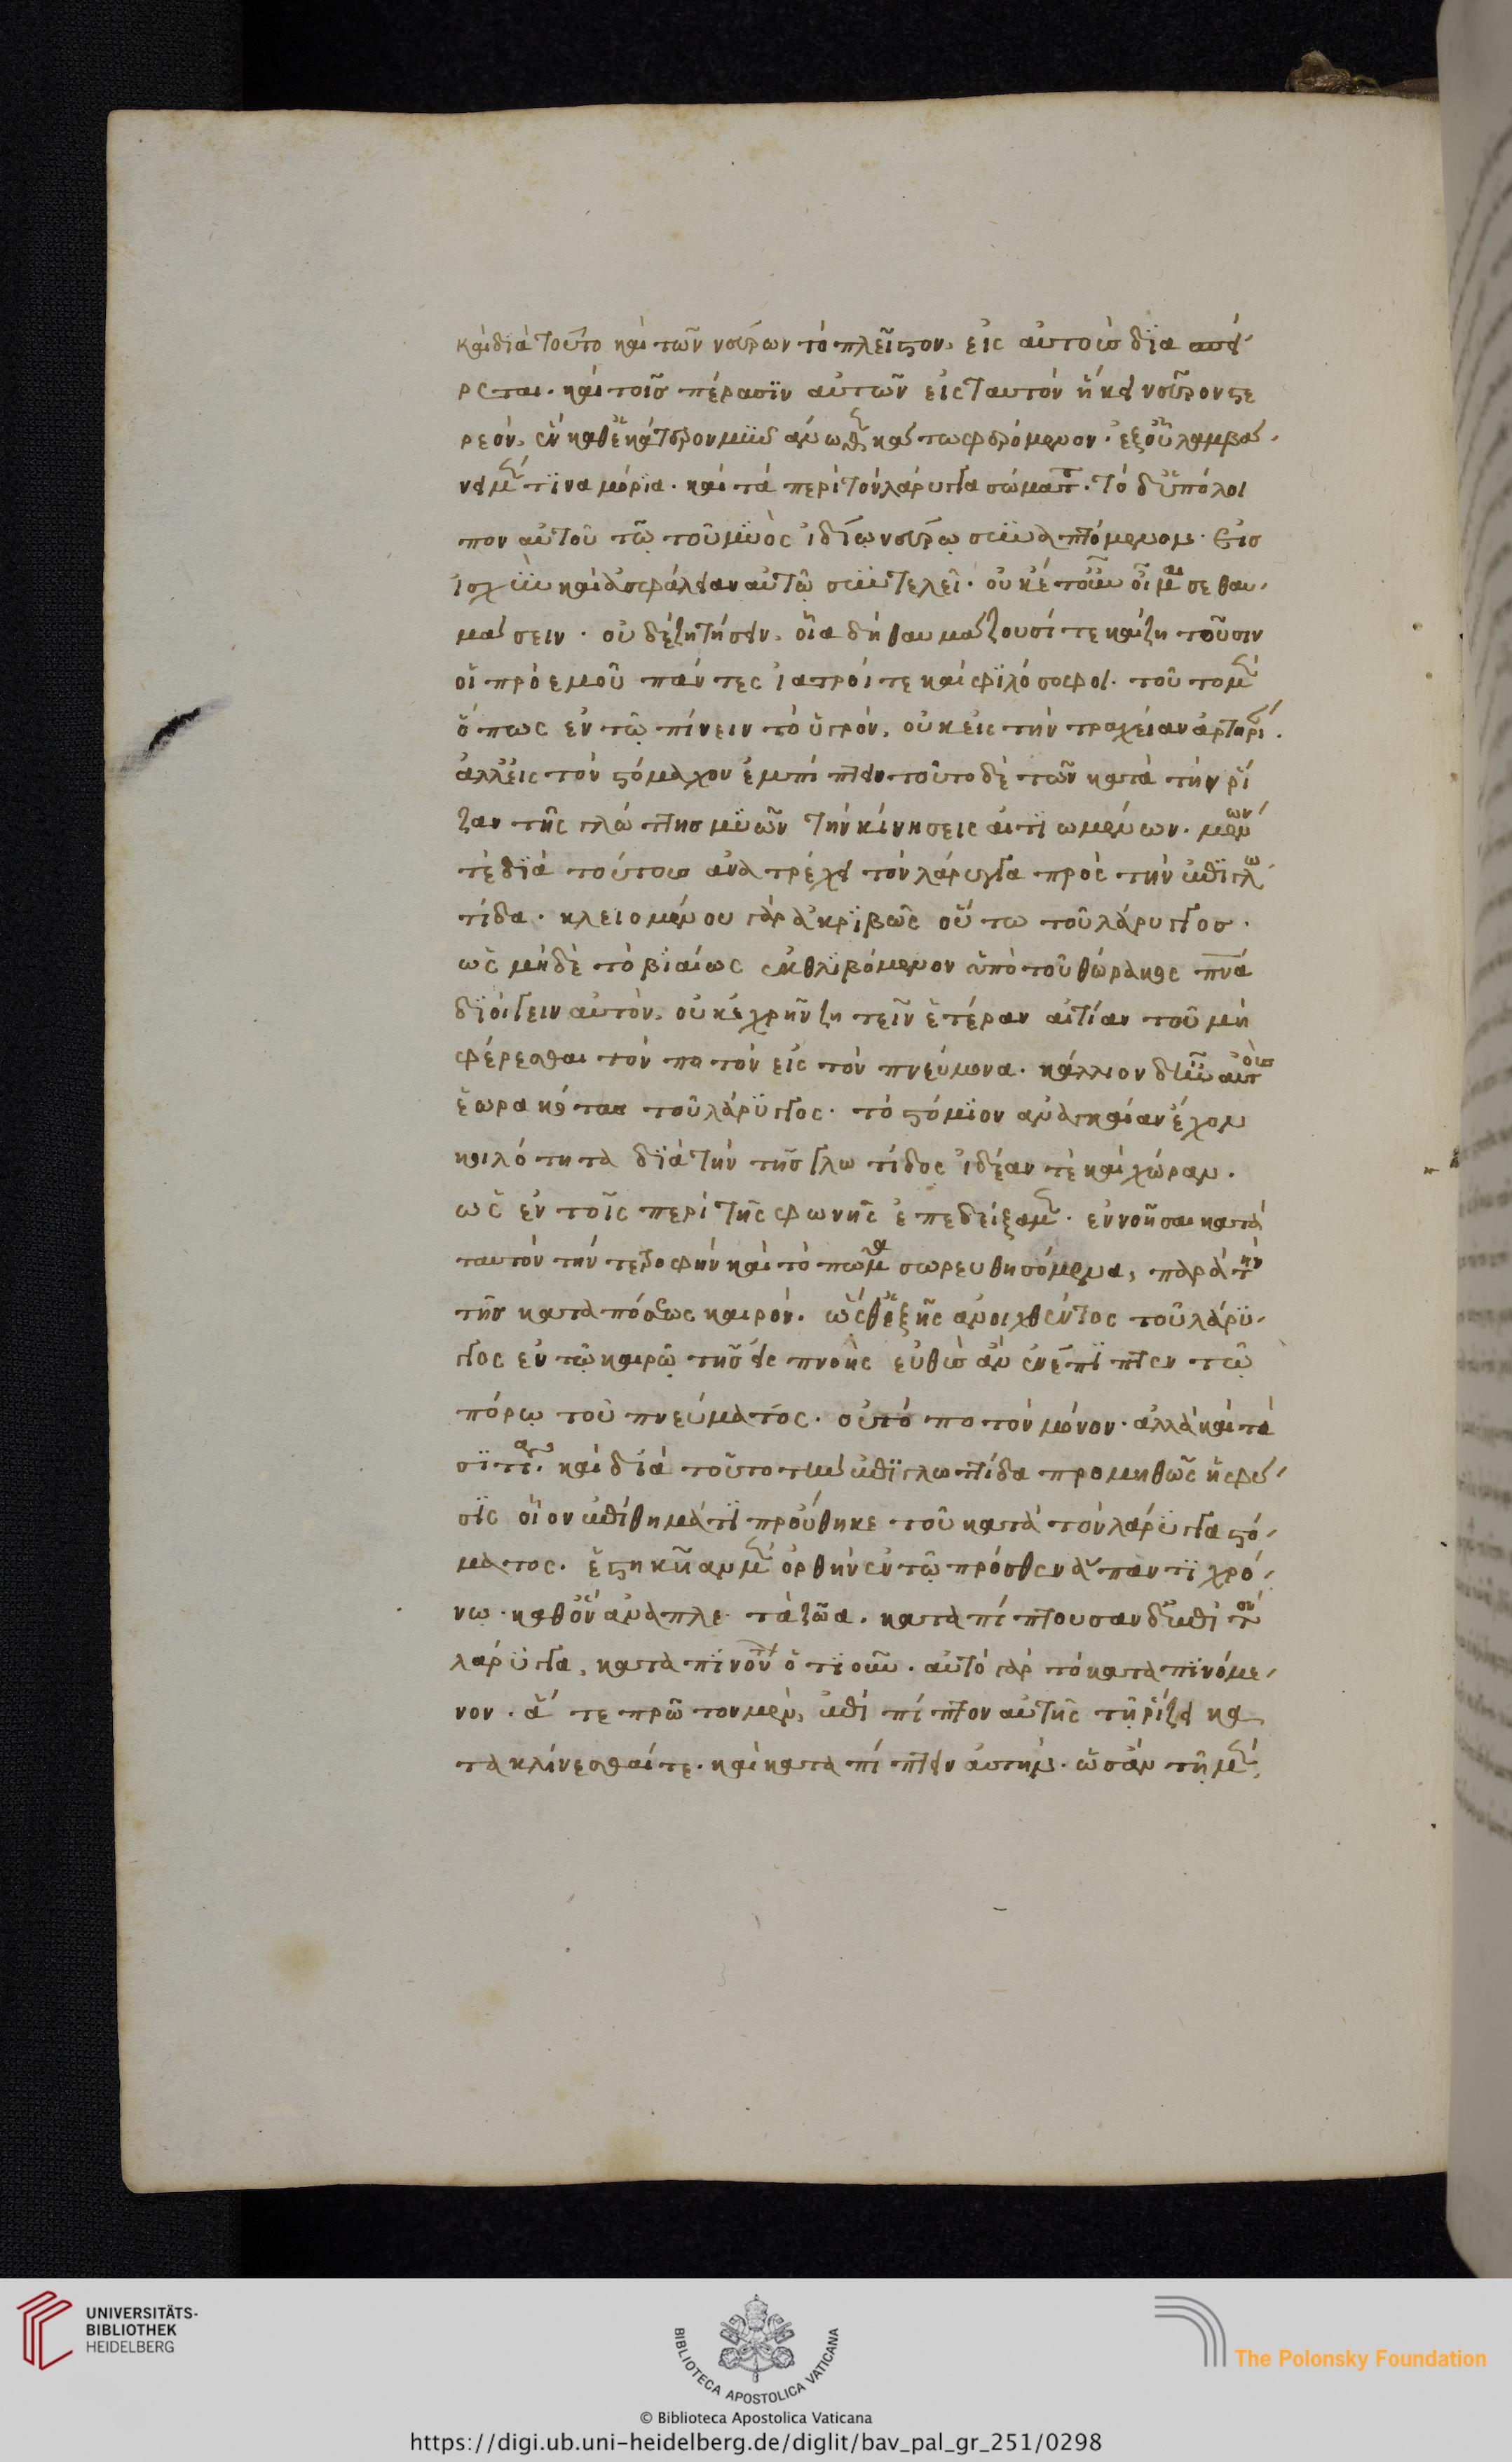 καὶ διὰ τοῦτο καὶ τῶν νεύρων τὸ πλεῖστον εἰς αὐτοὺς διασπεί
ρεται. καὶ τοῖς πέρασιν αὐτῶν εἰς ταυτὸν ἥκει νεῦρον στε
ρεὸν, ἓν καθ' ἑκάτερον μῦν ἄνωθεν κάτω φερόμενον. ἐξ οὗ λαμβά
νει μέν τινα μόρια. καὶ τὰ περὶ τὸν λάρυγγα σώματα. τὸ δ' ὑπόλοι
πον αὐτοῦ τῷ τοῦ μυὸς ἰδίῳ νεύρῳ συναπτόμενον. εἰς
ἰσχὺν καὶ ἀσφάλειαν αὐτῷ συντελεῖ. οὐκέτ' οὖν οἶμαί σε θαυ
μάσειν. οὐδὲ ζητήσειν, οἷα δὴ θαυμάζουσί τε καὶ ζητοῦσιν
οἱ πρὸ ἐμοῦ πάντες ἰατροί τε καὶ φιλόσοφοι. τοῦτο μὲν
ὅπως ἐν τῷ πίνειν τὸ ὑγρόν, οὐκ εἰς τὴν τραχεῖαν ἀρτηρί.
ἀλλ' εἰς τὸν στόμαχον ἐμπίπτειν τοῦτο δὲ τῶν κατὰ τὴν ῥί
ζαν τῆς γλώττης μυῶν τὴν κίνησεις αἰτιωμένων. μενόντων
τε διὰ τούτους ἀνατρέχει τὸν λάρυγγα πρὸς τὴν ἐπιγλω
τίδα. κλειομένου γὰρ ἀκριβῶς οὕτω τοῦ λάρυγγος.
ὡς μηδὲ τὸ βιαίως ἐκθλιβόμενον ὑπὸ τοῦ θώρακος πνᾶ
διοίγειν αὐτόν, οὐκ ἐχρῆν ζητεῖν ἑτέραν αἰτίαν τοῦ μὴ
φέρεσθαι τὸν ποτὸν εἰς τὸν πνεύμονα. κάλλιον δ' ἦν αὐτοὺς
ἑωρακότας τοῦ λάρυγγος. τὸ στόμιον ἀναγκαίαν ἔχον
κοιλότητα διὰ τὴν τῆς γλωτίδος ἰδέαν τὲ καὶ χώραν.
ὡς ἐν τοῖς περὶ τῆς φωνῆς ἐπεδείξαμεν. ἐννοῆσαι κατὰ
ταυτὸν τὴν τεροφὴν καὶ τὸ πῶμα σωρευθησόμενα, παρὰ τὴν
τῆς καταπόσεως καιρόν. ὡσέθ' ἑξῆς ἀνοιχθέντος τοῦ λάρυ
γγος ἐν τῷ καιρῷ τῆς εἰσπνοῆς εὐθὺς ἂν ἐνέπιπτεν τῷ
πόρῳ τοῦ πνεύματος. οὐ τὸ ποτὸν μόνον. ἀλλὰ καὶ τὰ
σιτία. καὶ διὰ τοῦτο τὴν ἐπιγλωττίδα προμηθῶς ἡ φύ
σις οἷον ἐπίθημά τι προὔθηκε τοῦ κατὰ τὸν λάρυγγα στό
ματος. ἑστηκυῖαν μὲν ὀρθὴν ἐν τῷ πρόσθεν ἅπαντι χρό
νῳ. καθ' ὃν ἀναπνε τὰ ζῶα. καταπίπτουσαν δ' ἐπὶ τὸν
λάρυγγα, καταπινόντων ὁτιοῦν. αὐτὸ γὰρ τὸ καταπινόμε
νον. ἅτε πρῶτον μὲν, ἐπιπίπτον αὐτῆς τῇ ῥίζει κα
τακλίνεσθαί τε. καὶ καταπίπτειν αὐτὴν. ὡς ἂν τῇ μὲν
UNIVERSITÄTS-
BIBLIOTHEK
HEIDELBERG
BIBLIOTECA APOSTOLICA VATICANA
The Polonsky Foundation
© Biblioteca Apostolica Vaticana
https://digi.ub.uni-heidelberg.de/diglit/bav_pal_gr_251/0298